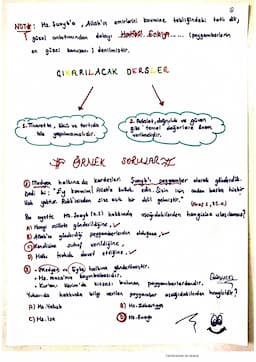 NOT: Hz. Şuayb'a, Allah'ın emirlerini kavmine tebliğindeki tatlı dili,
güzel anlatımından dolayı Hatibül Enbiya..... (peygamberlerin
en güzel konuşanı) denilmiştir.
ÇIKARILACAK DERSLER
1. Ticarette, ölçü ve tartıda
hile yapılmamalıdır.
2. Adalet, doğruluk ve güven
gibi temel değerlere önem
verilmelidir.
ÖRNEK SORULAR
① Medyen halkına da kardeşleri Şuayb'ı peygamber olarak gönderdik.
Dedi ki: "Ey kavmim! Allah'a kulluk edin. Sizin için ondan başka ilah
yok. Rabbinizden size açık bir delil gelmiştir."
(Araf s., 85.a)
Bu ayette Hz. Şuayb (a.s) hakkında aşağıdakilerden hangisine ulaşılamaz?
A) Hangi millete gönderildiğine
B) Allah'ın gönderdiği peygamberlerden olduğuna
C) Kendisine suhuf verildiğine
D) Hakka davet ettiğine
② - Medyen ve Eyke halkına gönderilmiştir.
- Hz. Musa'nın kayınbabasıdır.
- Kur'an-ı Kerim'de kıssası bulunan peygamberlerdendir.
Yukarıda hakkında bilgi verilen peygamber aşağıdakilerden hangisidir?
A) Hz. Yakub
B) Hz. Zekeriyya
C) Hz. İsa
D) Hz. Şuayb